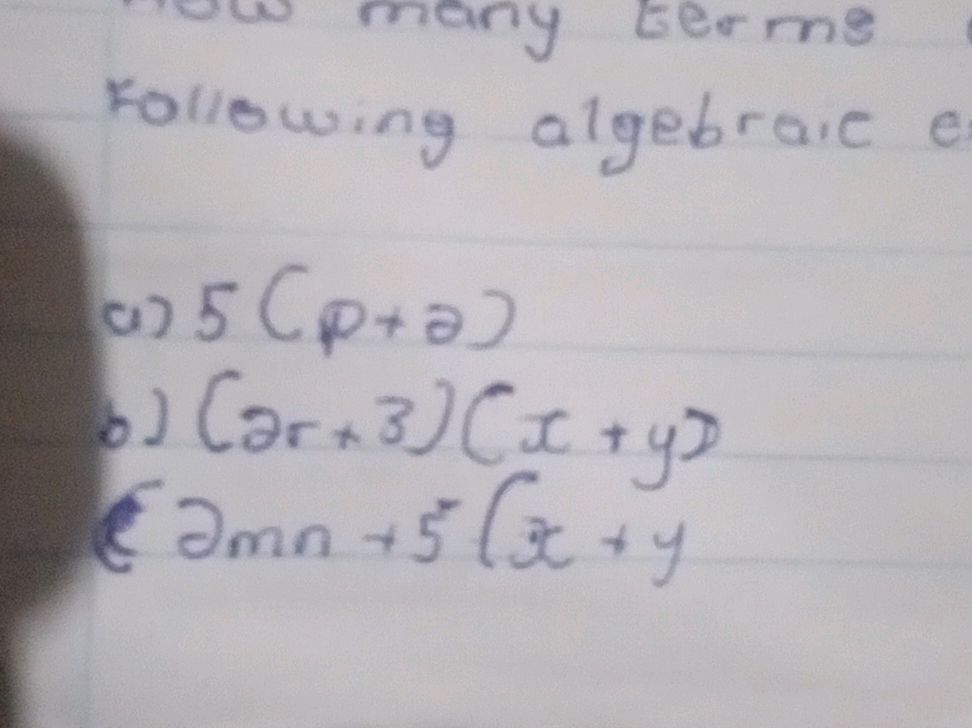 How many terms
Following algebraic
a) 5 (p+2)
b) (2r+3)(x+y)
c 2mn+5(x+y